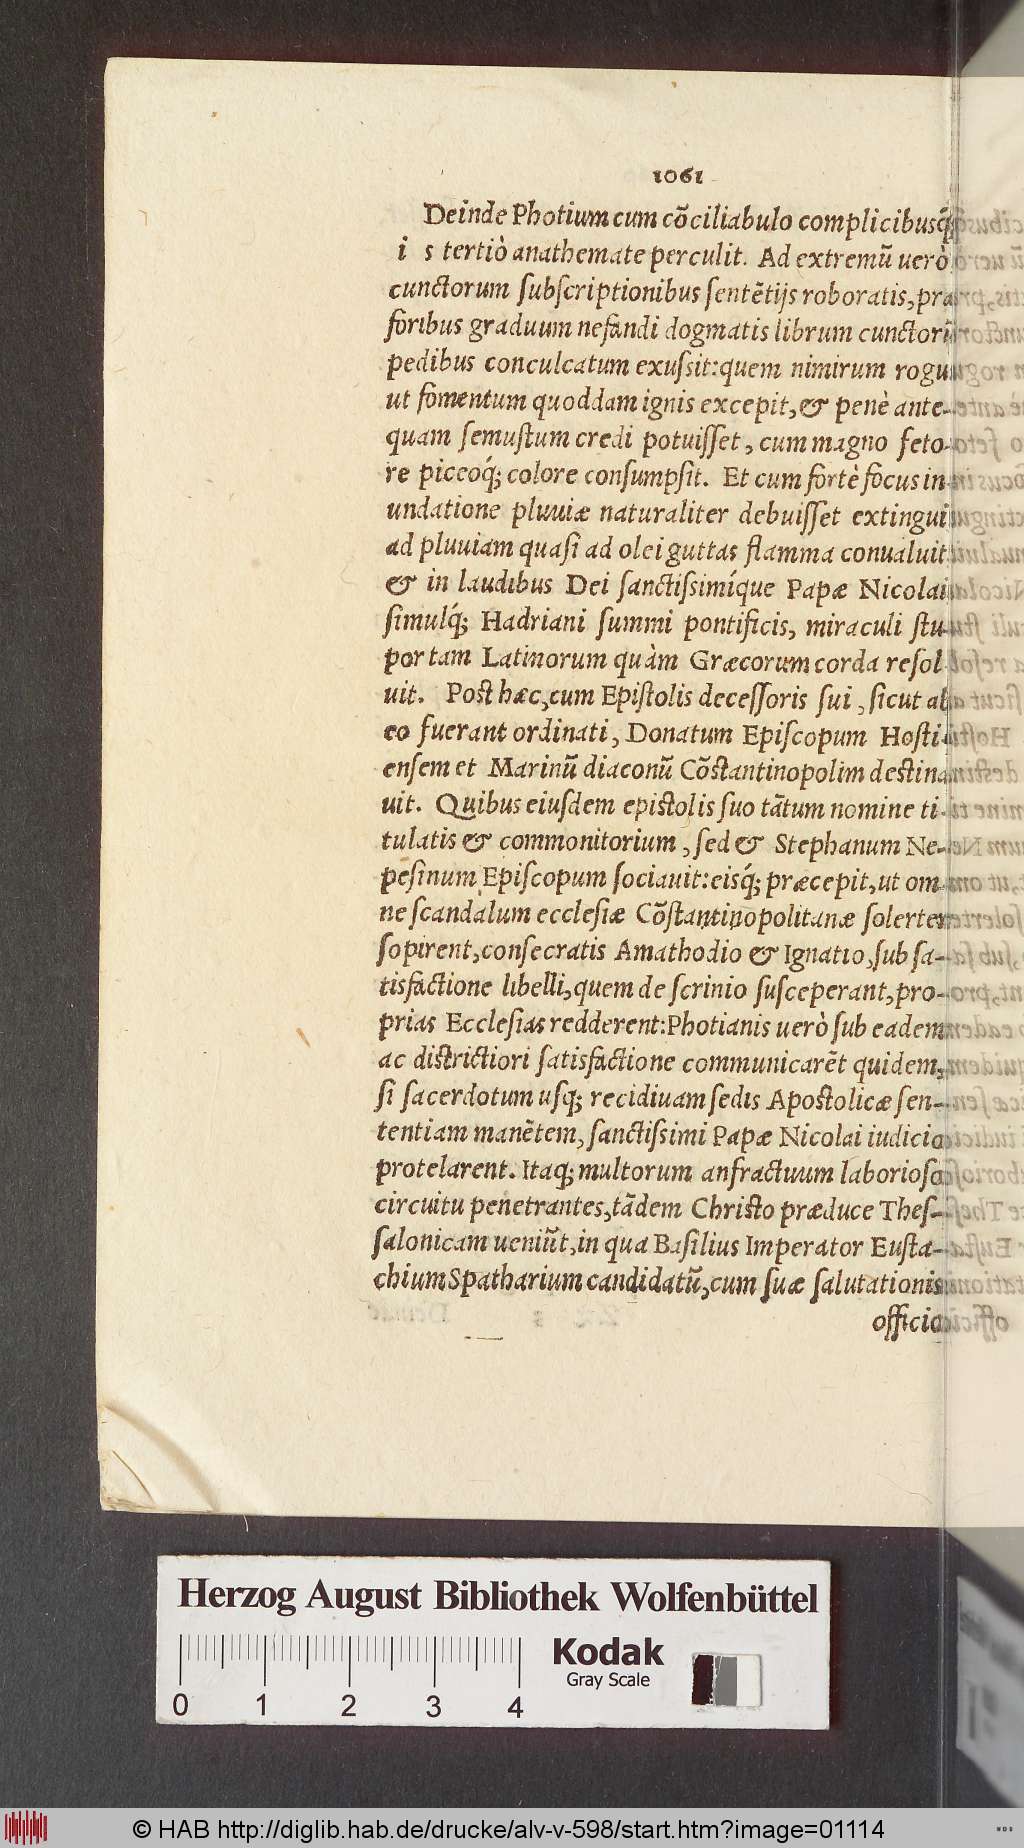 1061
Deinde Photium cum cōciliabulo complicibusq́;
i s tertiò anathemate perculit. Ad extremũ uerò
cunctorum ſubſcriptionibus ſentẽtijs roboratis, præ
foribus graduum nefandi dogmatis librum cunctorũ
pedibus conculcatum exuſsit: quem nimirum rogu
ut fomentum quoddam ignis excepit, & penè ante-
quam ſemuſtum credi potuiſſet, cum magno feto-
re piceoq́; colore conſumpſit. Et cum fortè focus in-
undatione pluuiæ naturaliter debuiſſet extingui
ad pluuiam quaſi ad olei guttas flamma conualuit
& in laudibus Dei ſanctiſsimíque Papæ Nicolai
ſimulq́; Hadriani ſummi pontificis, miraculi ſtu-
por tam Latinorum quàm Græcorum corda reſol
uit. Poſt hæc, cum Epiſtolis deceſſoris ſui, ſicut ab
eo fuerant ordinati, Donatum Epiſcopum Hoſti-
enſem et Marinũ diaconũ Cōſtantinopolim deſtina
uit. Quibus eiuſdem epiſtolis ſuo tãtum nomine ti-
tulatis & commonitorium, ſed & Stephanum Ne-
peſinum Epiſcopum ſociauit: eisq́; præcepit, ut om
ne ſcandalum eccleſiæ Cōſtantinopolitanæ ſolerter
ſopirent, conſecratis Amathodio & Ignatio, ſub ſa-
tisfactione libelli, quem de ſcrinio ſuſceperant, pro-
prias Eccleſias redderent: Photianis uerò ſub eadem
ac diſtrictiori ſatisfactione communicarẽt quidem,
ſi ſacerdotum uſq; recidiuam ſedis Apoſtolicæ ſen-
tentiam manẽtem, ſanctiſsimi Papæ Nicolai iudicio
protelarent. Itaq; multorum anfractuum laborioſo
circuitu penetrantes, tãdem Chriſto præduce Theſ-
ſalonicam ueniũt, in qua Baſilius Imperator Euſta-
chium Spatharium candidatũ, cum ſuæ ſalutationis
officio
Herzog August Bibliothek Wolfenbüttel
Kodak
Gray Scale
0 1 2 3 4
© HAB http://diglib.hab.de/drucke/alv-v-598/start.htm?image=01114